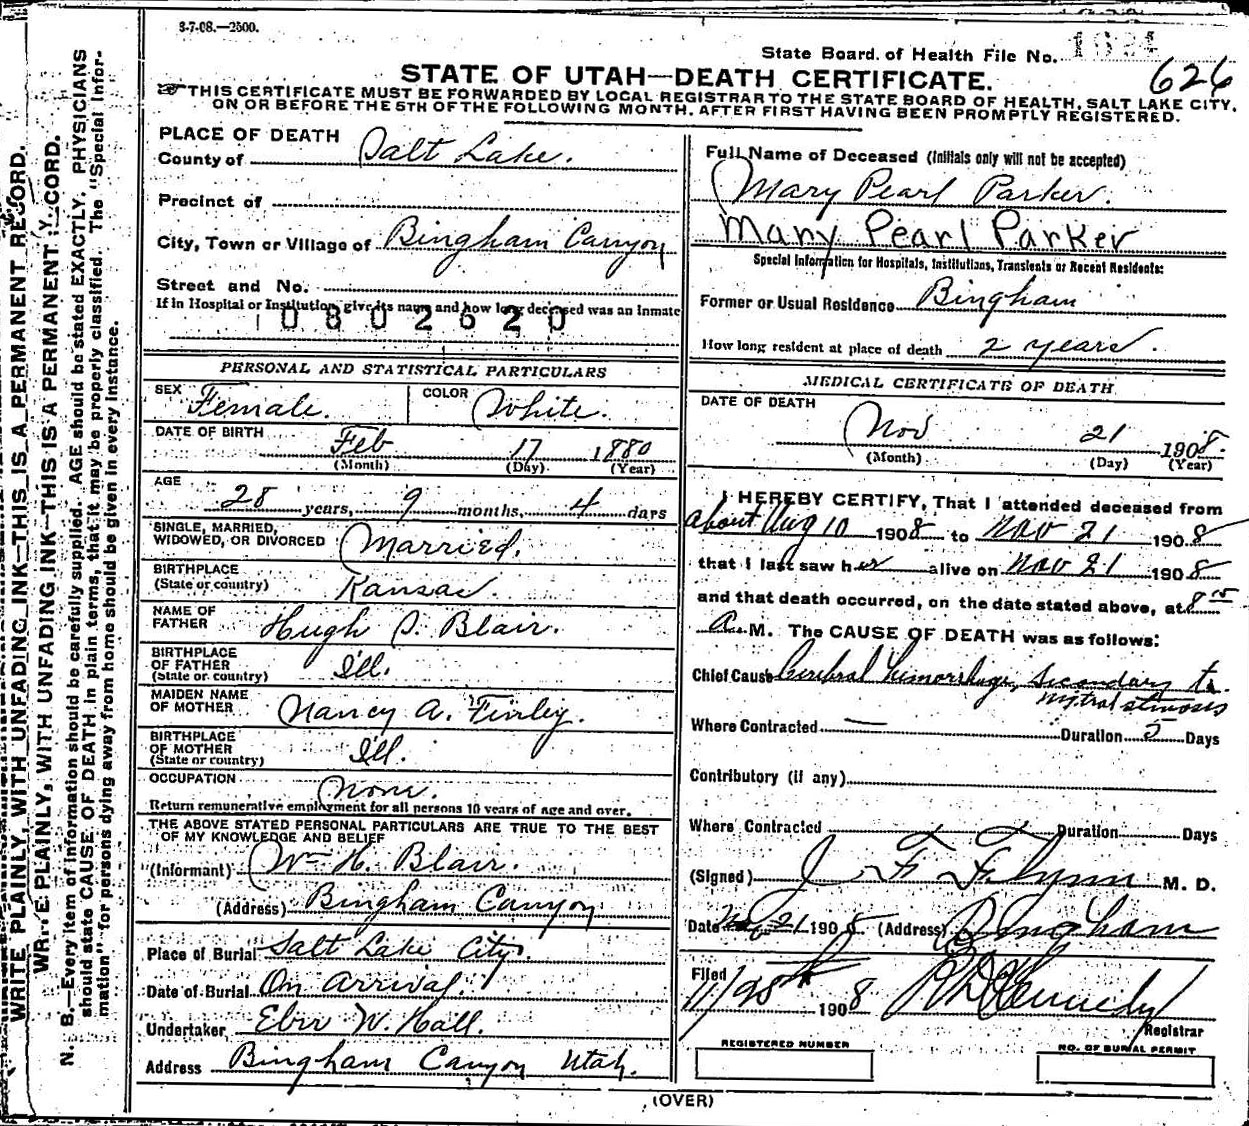 3-7-08.—2500.
State Board of Health File No. 1624
626
STATE OF UTAH—DEATH CERTIFICATE.
THIS CERTIFICATE MUST BE FORWARDED BY LOCAL REGISTRAR TO THE STATE BOARD OF HEALTH, SALT LAKE CITY,
ON OR BEFORE THE 5TH OF THE FOLLOWING MONTH, AFTER FIRST HAVING BEEN PROMPTLY REGISTERED.
WRITE PLAINLY, WITH UNFADING INK—THIS IS A PERMANENT RECORD.
WRITE PLAINLY, WITH UNFADING INK—THIS IS A PERMANENT CORD.
N. B.—Every item of information should be carefully supplied. AGE should be stated EXACTLY. PHYSICIANS
should state CAUSE OF DEATH in plain terms, that it may be properly classified. The "Special Infor-
mation" for persons dying away from home should be given in every instance.
PLACE OF DEATH
County of Salt Lake.
Precinct of
City, Town or Village of Bingham Canyon
Street and No.
If in Hospital or Institution, give its name and how long deceased was an Inmate
0802620
PERSONAL AND STATISTICAL PARTICULARS
SEX Female. COLOR White.
DATE OF BIRTH Feb 17 1880
(Month) (Day) (Year)
AGE
28 years, 9 months, 4 days
SINGLE, MARRIED,
WIDOWED, OR DIVORCED Married.
BIRTHPLACE
(State or country) Kansas.
NAME OF
FATHER Hugh S. Blair.
BIRTHPLACE
OF FATHER
(State or country) Ill.
MAIDEN NAME
OF MOTHER Nancy A. Finley.
BIRTHPLACE
OF MOTHER
(State or country) Ill.
OCCUPATION None.
Return remunerative employment for all persons 10 years of age and over.
THE ABOVE STATED PERSONAL PARTICULARS ARE TRUE TO THE BEST
OF MY KNOWLEDGE AND BELIEF
(Informant) Wm H. Blair.
(Address) Bingham Canyon
Place of Burial Salt Lake City.
Date of Burial On Arrival.
Undertaker Eber W. Hall.
Address Bingham Canyon Utah.
Full Name of Deceased (Initials only will not be accepted)
Mary Pearl Parker.
Mary Pearl Parker
Special Information for Hospitals, Institutions, Transients or Recent Residents:
Former or Usual Residence Bingham
How long resident at place of death 2 years.
MEDICAL CERTIFICATE OF DEATH
DATE OF DEATH
Nov 21 1908.
(Month) (Day) (Year)
I HEREBY CERTIFY, That I attended deceased from
about Aug 10 1908 to Nov 21 1908
that I last saw her alive on Nov 21 1908
and that death occurred, on the date stated above, at 8 15
A. M. The CAUSE OF DEATH was as follows:
Chief Cause Cerebral hemorrhage, secondary to
mitral stenosis
Where Contracted — Duration 5 Days
Contributory (if any)
Where Contracted Duration Days
(Signed) J F Flynn M. D.
Date Nov 21 1908 (Address) Bingham
Filed
11/28 1908
Registrar
REGISTERED NUMBER
NO. OF BURIAL PERMIT
(OVER)